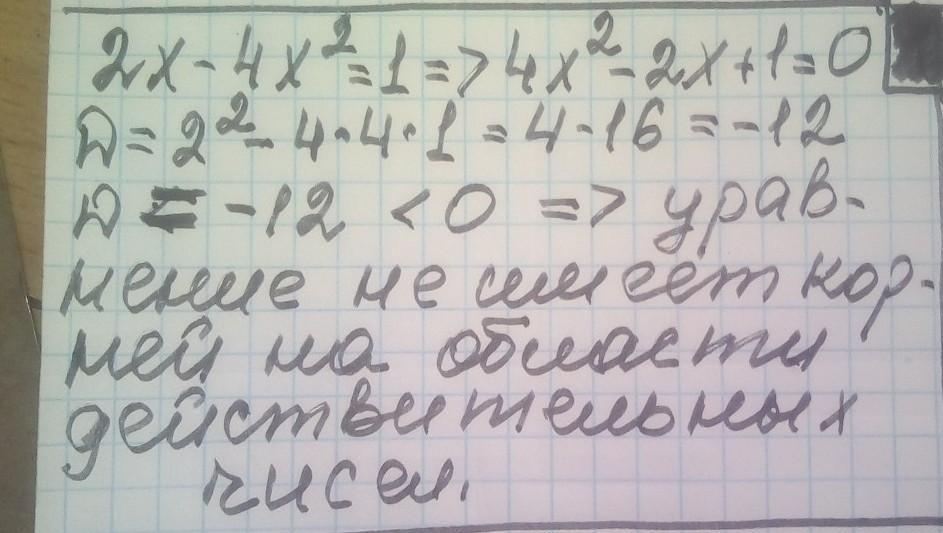 2x - 4x² = 1 => 4x² - 2x + 1 = 0
D = 2² - 4 · 4 · 1 = 4 - 16 = -12
D = -12 < 0 => урав-
нение не имеет кор-
ней на области
действительных
чисел.